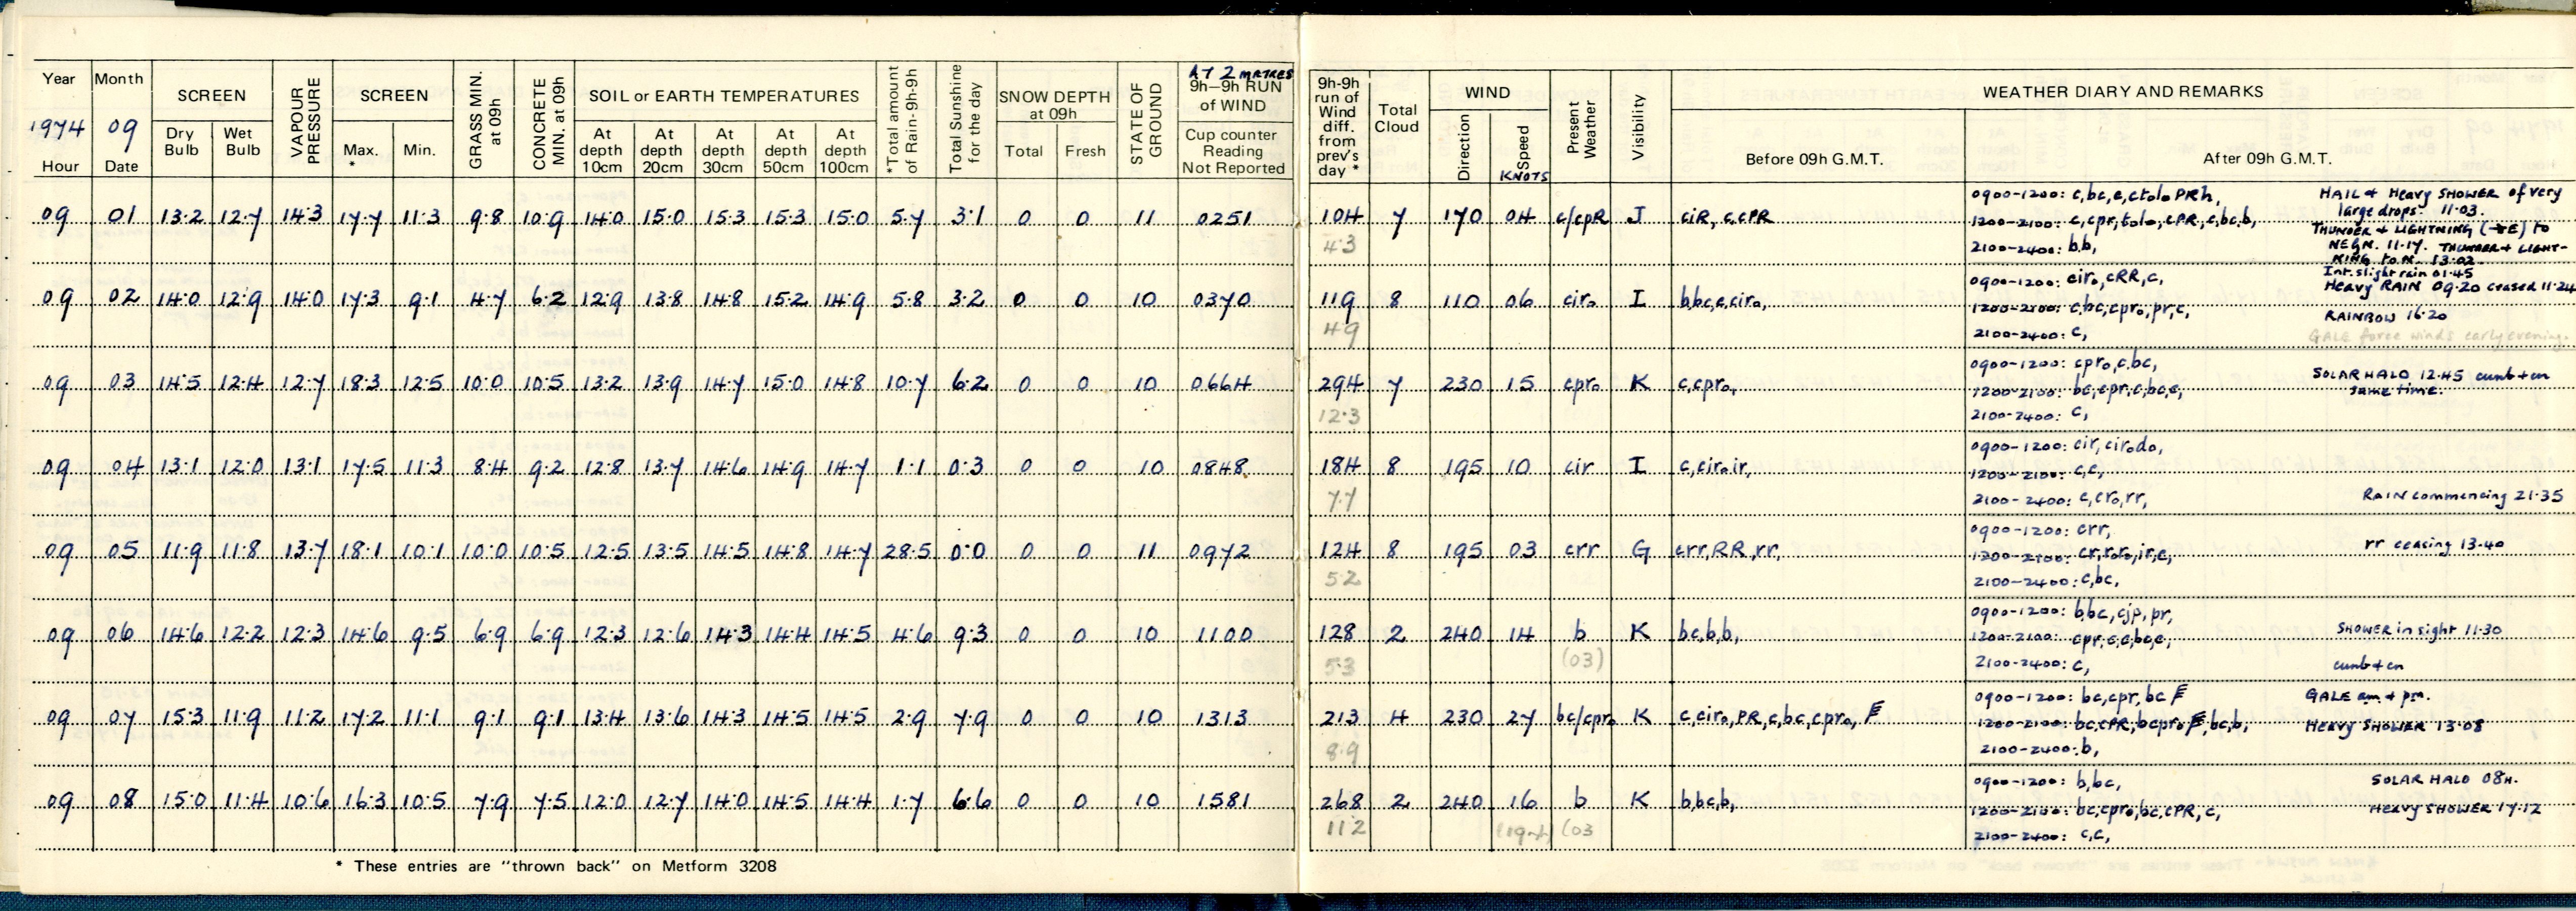 Year Month SCREEN VAPOUR PRESSURE SCREEN GRASS MIN. at 09h CONCRETE MIN. at 09h SOIL or EARTH TEMPERATURES *Total amount of Rain-9h-9h Total Sunshine for the day SNOW DEPTH at 09h STATE OF GROUND AT 2 METRES 9h–9h RUN of WIND
1974 09
Hour Date Dry Bulb Wet Bulb Max. * Min. At depth 10cm At depth 20cm At depth 30cm At depth 50cm At depth 100cm Total Fresh Cup counter Reading Not Reported
9h-9h run of Wind diff. from prev's day * Total Cloud WIND Direction Speed KNOTS Present Weather Visibility WEATHER DIARY AND REMARKS
Before 09h G.M.T. After 09h G.M.T.
09 01 13·2 12·7 14·3 17·7 11·3 9·8 10·9 14·0 15·0 15·3 15·3 15·0 5·7 3·1 0 0 11 0251 104 7 170 04 c/cpR J ciR, c,cPR
4·3
0900-1200: c, bc, c, ctolo PRh, HAIL & Heavy SHOWER of very
large drops. 11·03.
1200-2100: c, cpr, tolo, cPR, c, bc, b, THUNDER & LIGHTNING to
2100-2400: b,b, NE & N. 11·17. THUNDER & LIGHT-
NING to N. 13·02
09 02 14·0 12·9 14·0 17·3 9·1 4·7 6·2 12·9 13·8 14·8 15·2 14·9 5·8 3·2 0 0 10 0370 119 8 110 06 ciro I b,bc,c,ciro,
4·9
0900-1200: ciro, cRR, c, Int. slight rain 01·45
Heavy RAIN 09·20 ceased 11·24
1200-2100: c,bc,cpro,pr,c, RAINBOW 16·20
2100-2400: c, GALE force winds early evening.
09 03 14·5 12·4 12·7 18·3 12·5 10·0 10·5 13·2 13·9 14·7 15·0 14·8 10·7 6·2 0 0 10 0664 294 7 230 15 cpro K c,cpro,
12·3
0900-1200: cpro, c,bc,
1200-2100: bc,cpr,c,bc,c, SOLAR HALO 12·45 cumb + cn
same time.
2100-2400: c,
09 04 13·1 12·0 13·1 17·5 11·3 8·4 9·2 12·8 13·7 14·6 14·9 14·7 1·1 0·3 0 0 10 0848 184 8 195 10 cir I c,ciro,ir,
7·7
0900-1200: cir, cirodo,
1200-2100: c,c,
2100-2400: c,cro,rr, RAIN commencing 21·35
09 05 11·9 11·8 13·7 18·1 10·1 10·0 10·5 12·5 13·5 14·5 14·8 14·7 28·5 0·0 0 0 11 0972 124 8 195 03 crr G crr,RR,rr,
5·2
0900-1200: crr,
1200-2100: cr,roro,ir,c, rr ceasing 13·40
2100-2400: c,bc,
09 06 14·6 12·2 12·3 14·6 9·5 6·9 6·9 12·3 12·6 14·3 14·4 14·5 4·6 9·3 0 0 10 1100 128 2 240 14 b K bc,b,b,
5·3 (03)
0900-1200: b,bc, cjp, pr,
1200-2100: cpr,c,c,bc,c, SHOWER in sight 11·30
2100-2400: c, cumb + cn
09 07 15·3 11·9 11·2 17·2 11·1 9·1 9·1 13·4 13·6 14·3 14·5 14·5 2·9 7·9 0 0 10 1313 213 4 230 27 bc/cpro K c,ciro,PR,c,bc,cpro,
8·9
0900-1200: bc,cpr,bc GALE am + pm.
1200-2100: bc,cPR,bcpro, bc,b, HEAVY SHOWER 13·08
2100-2400: b,
09 08 15·0 11·4 10·6 16·3 10·5 7·9 7·5 12·0 12·7 14·0 14·5 14·4 1·7 6·6 0 0 10 1581 268 2 240 16 b K b,bc,b,
11·2 (03
0900-1200: b,bc, SOLAR HALO 08H.
1200-2100: bc,cpro,bc,cPR,c, HEAVY SHOWER 17·12
2100-2400: c,c,
* These entries are "thrown back" on Metform 3208